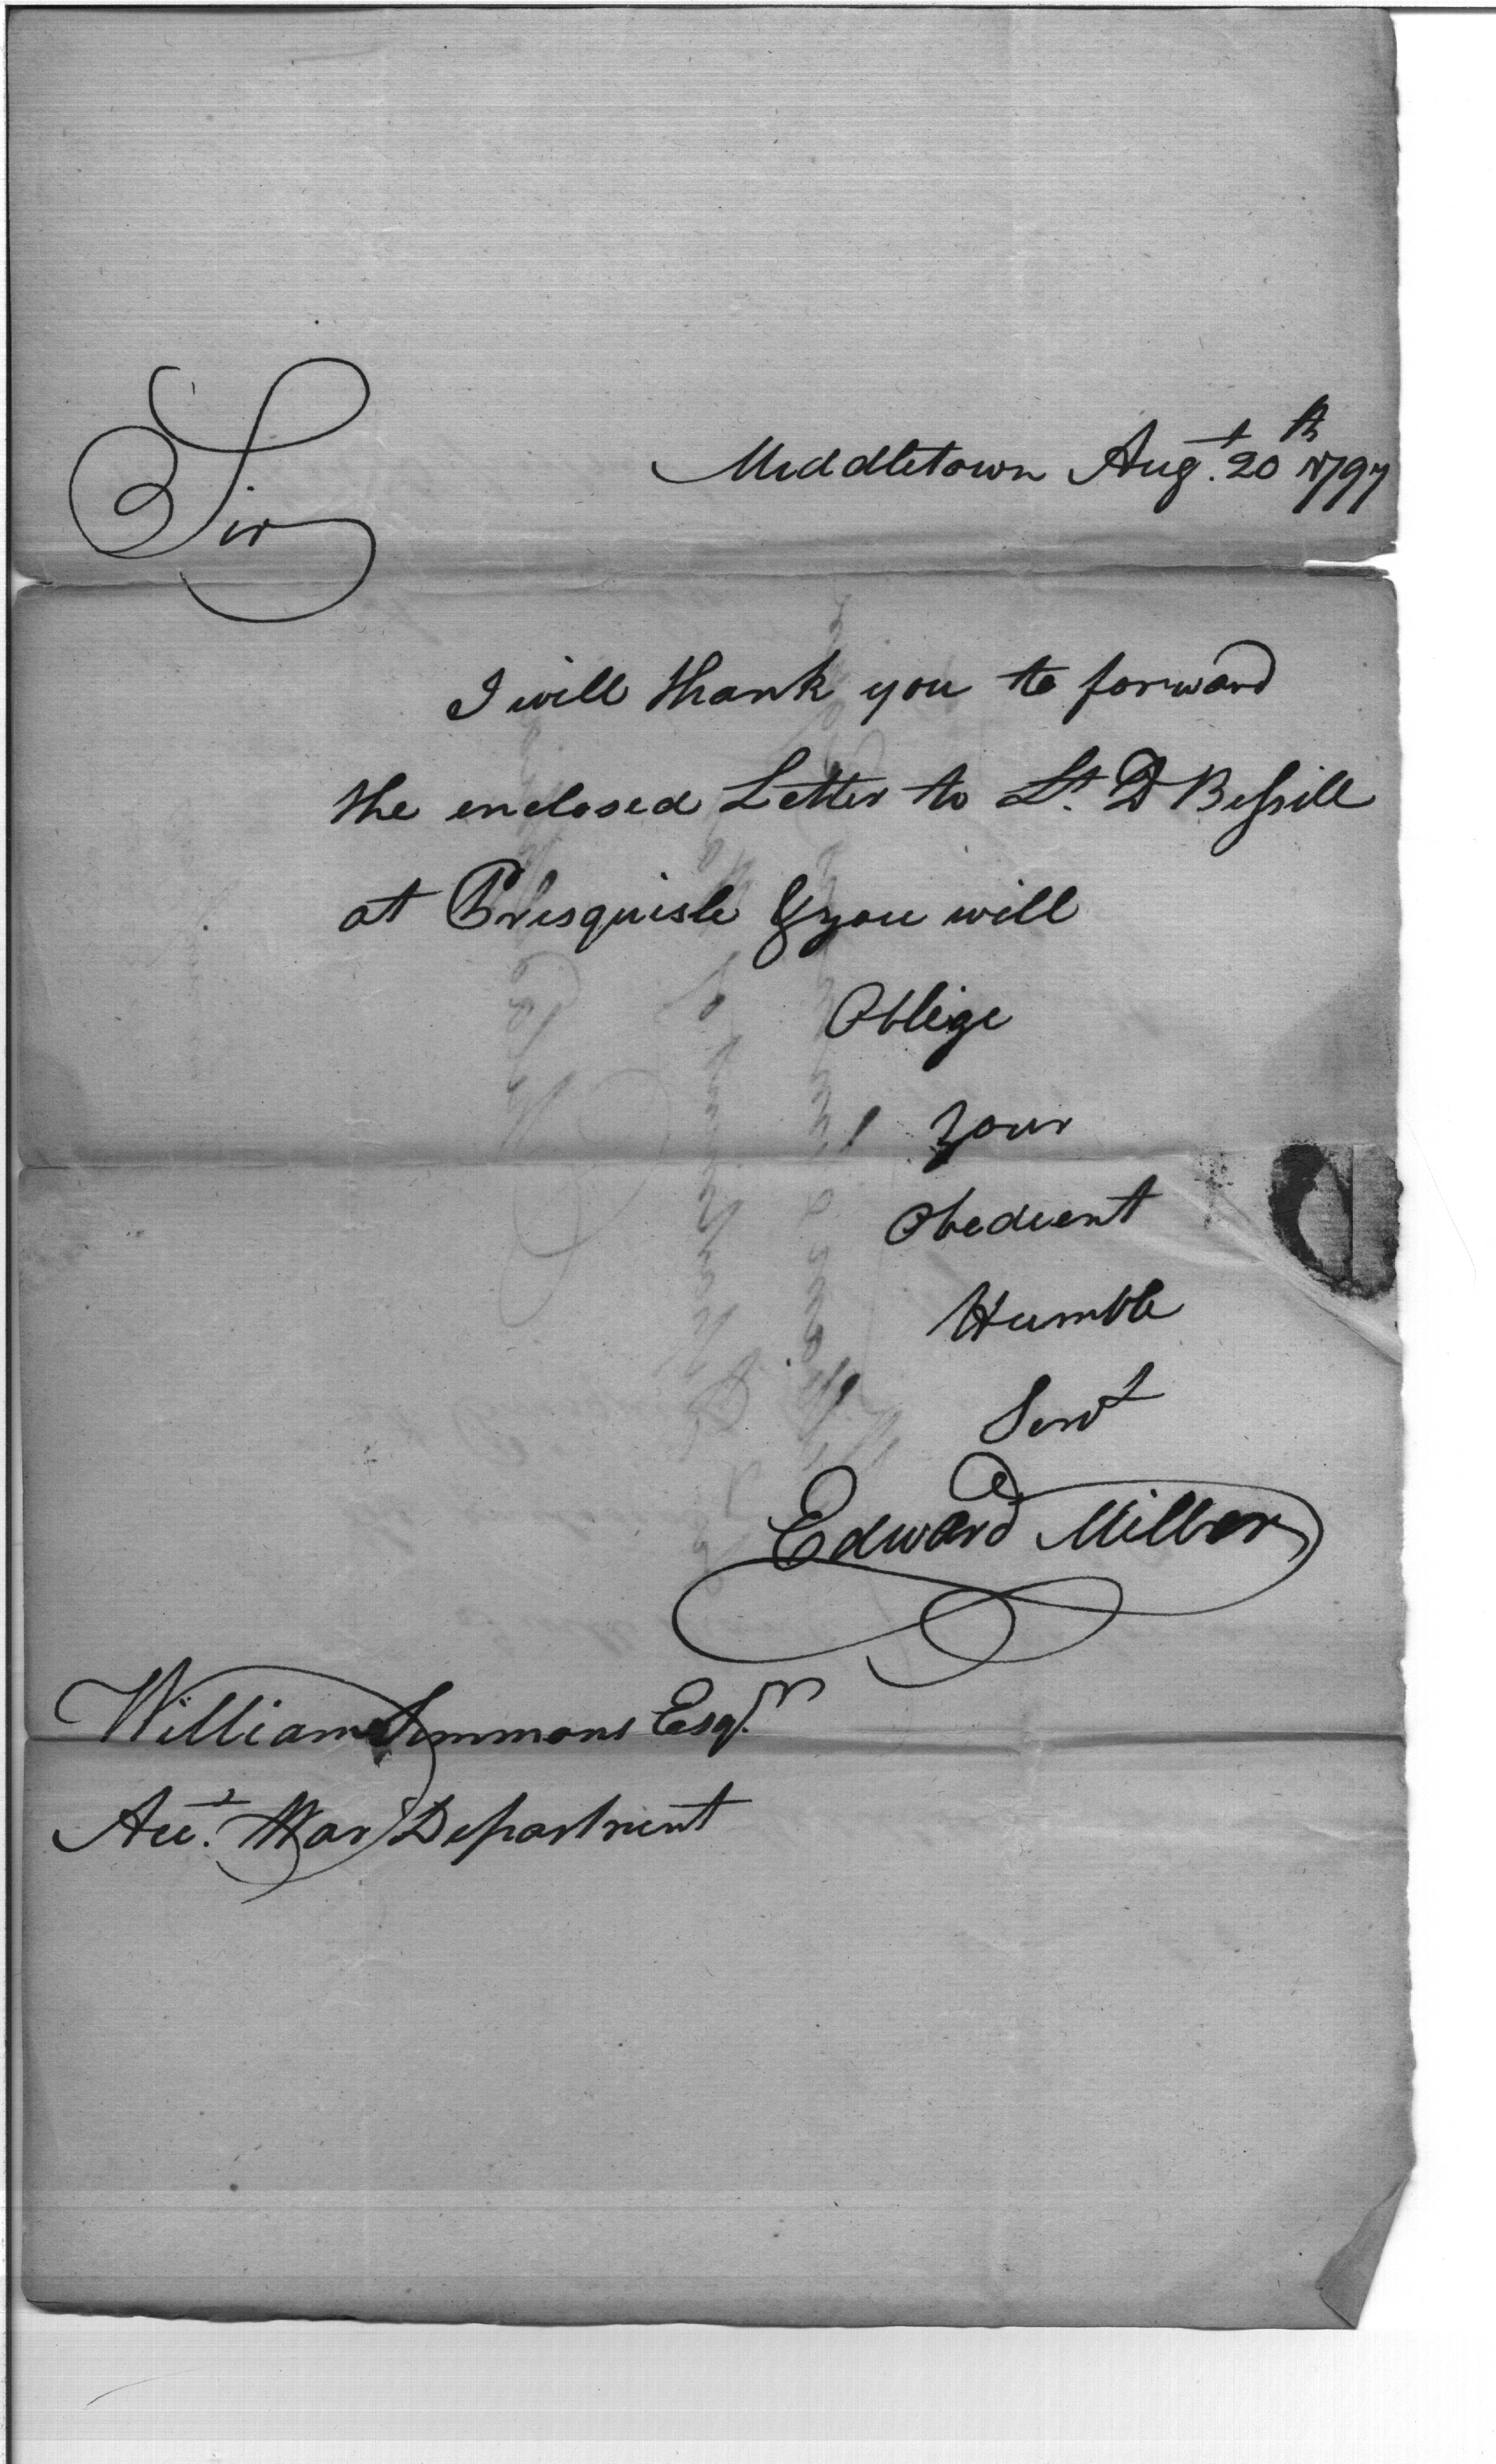 Middletown Augt. 20th 1797
Sir
I will thank you to forward
the enclosed Letter to Lt. D Bessill
at Presquisle & you will
Oblige
Your
Obedient
Humble
Servt
Edward Miller
William Simmons Esqr.
Acct. War Department